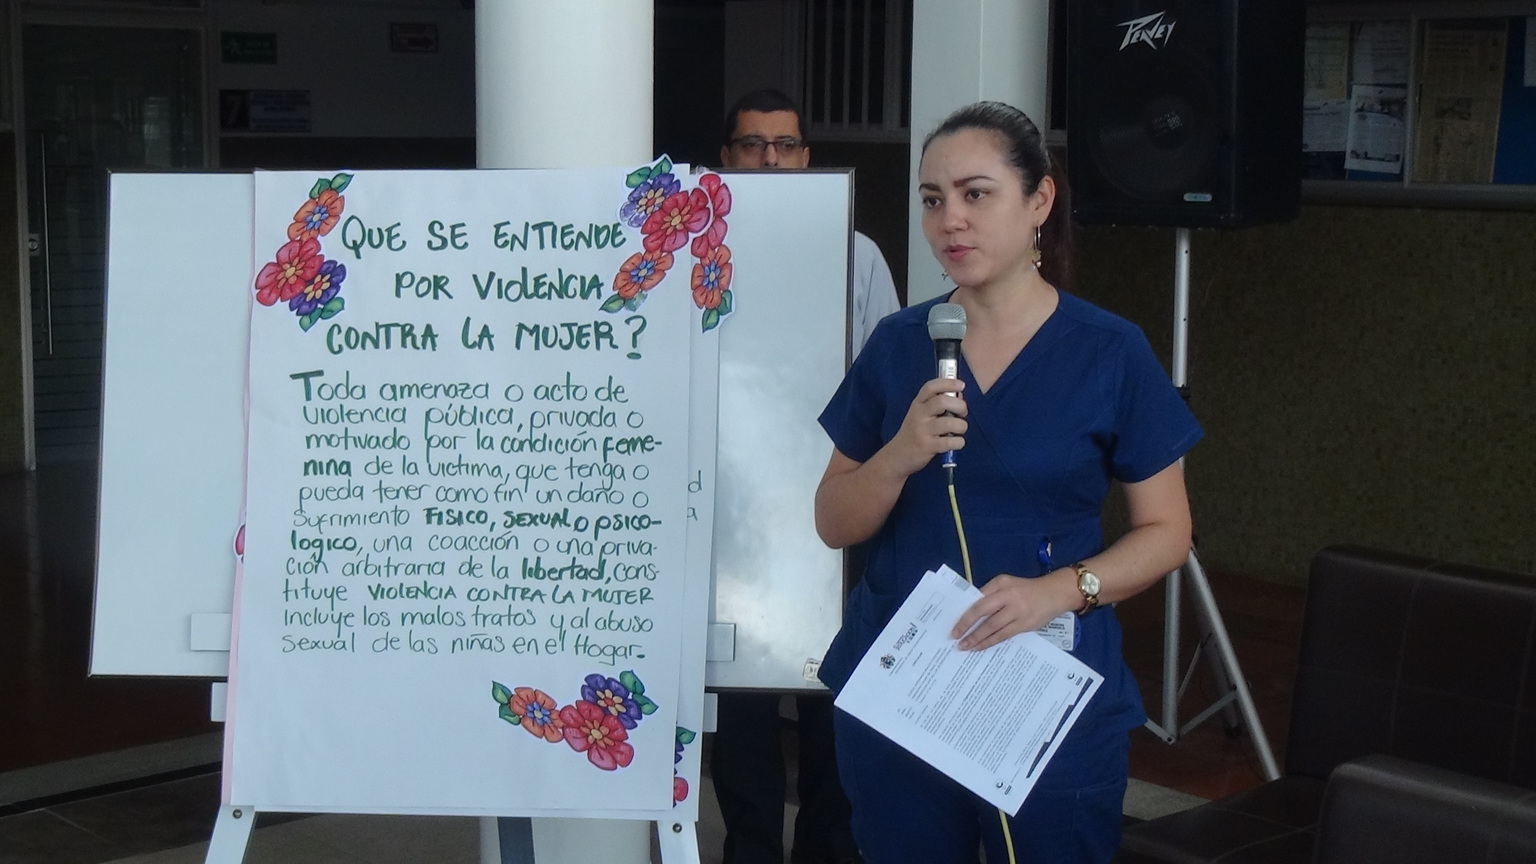 QUE SE ENTIENDE
POR VIOLENCIA
CONTRA LA MUJER?
Toda amenaza o acto de
violencia pública, privada o
motivado por la condición feme-
nina de la victima, que tenga o
pueda tener como fin un daño o
Sufrimiento FISICO, SEXUAL o psico-
lógico, una coacción o una priva-
ción arbitraria de la libertad, cons-
tituye VIOLENCIA CONTRA LA MUJER
Incluye los malos tratos y al abuso
sexual de las niñas en el Hogar.
PEAVEY